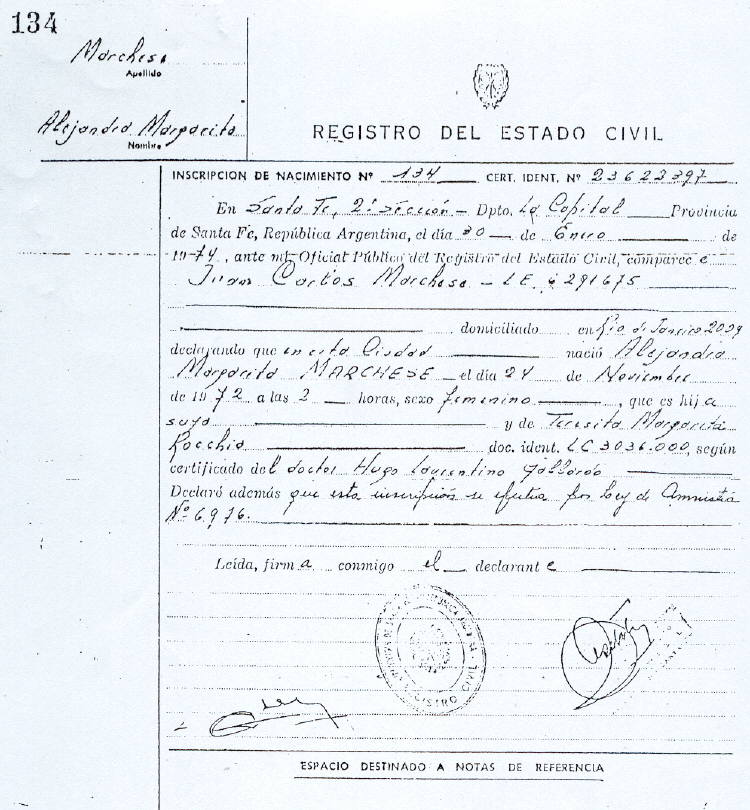 134
Marchese
Apellido
Alejandra Margarita
Nombre
REGISTRO DEL ESTADO CIVIL
INSCRIPCION DE NACIMIENTO Nº 134 CERT. IDENT. Nº 23622397
En Santa Fe, 2ª Sección - Dpto. La Capital Provincia
de Santa Fe, República Argentina, el día 30 de Enero de
1974, ante mí, Oficial Público del Registro del Estado Civil, comparece
Juan Carlos Marchese - LE. 6291675
domiciliado en Rio de Janeiro
declarando que en esta Ciudad nació Alejandra
Margarita MARCHESE el día 24 de Noviembre
de 1972 a las 2 horas, sexo femenino, que es hija
suya y de Teresita Margarita
Rocchia doc. ident. LC 3036.000, según
certificado del doctor Hugo Laurentino Gallardo
Declaró además que esta inscripción se efectua por Ley de Amnistia
Nº 6976.
Leída, firma conmigo el declarante
REGISTRO CIVIL
ESPACIO DESTINADO A NOTAS DE REFERENCIA